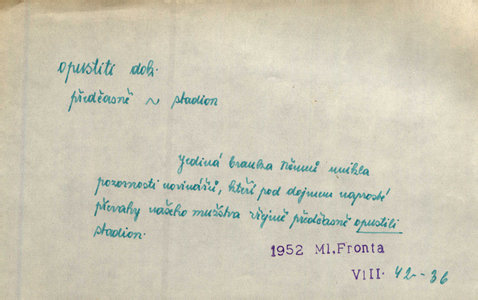 opustiti dok.
předčasně ~ stadion
Jediná branka Němců unikla
pozornosti novinářů, kteří pod dojmem naprosté
převahy našeho mužstva zřejmě předčasně opustili
stadion.
1952 Ml.Fronta
VIII. 42-36